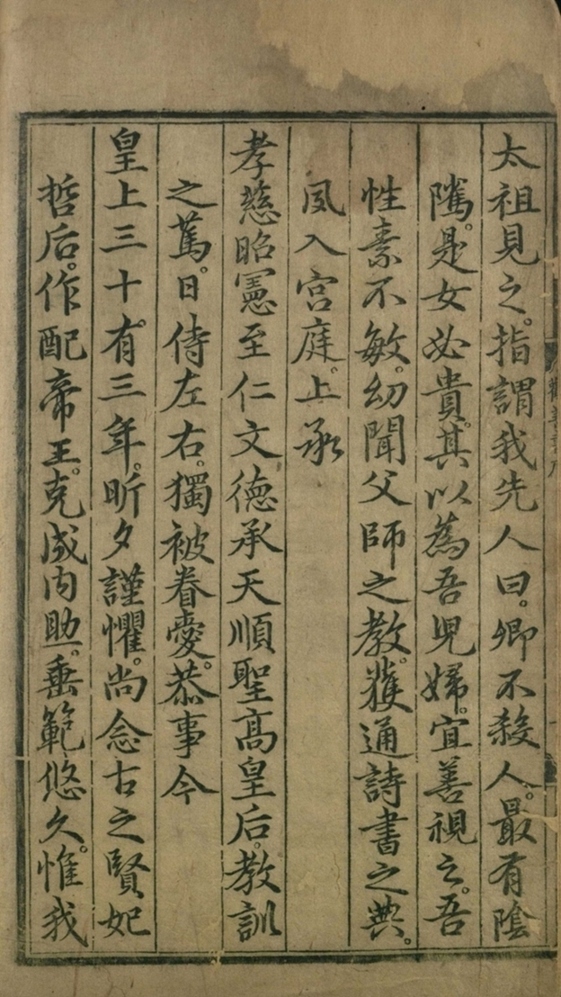 太祖見之。指謂我先人曰。卿不殺人。最有陰
隲。是女必貴。其以為吾児婦。宜善視之。吾
性素不敏。幼聞父師之教。獲通詩書之典。
夙入宮庭。上承
孝慈昭憲至仁文德承天順聖高皇后。教訓
之篤。日侍左右。獨被眷愛。恭事今
皇上三十有三年。昕夕謹懼。尚念古之賢妃
哲后。作配帝王。克成内助。垂範悠久。惟我